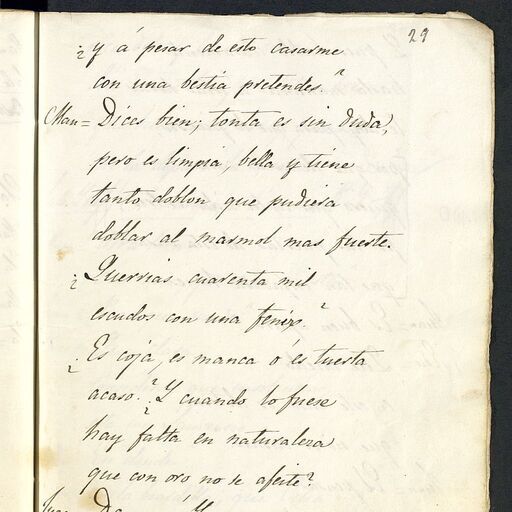 29
¿y á pesar de esto casarme
con una bestia pretendes?
Man= Dices bien; tonta es sin duda,
pero es limpia, bella y tiene
tanto doblon que pudiera
doblar al marmol mas fuerte.
¿Querrias cuarenta mil
escudos con una fenix?
¿Es coja, es manca ó es tuerta
acaso? ¿Y cuando lo fuese
hay falta en naturaleza
que con oro no se afeite?